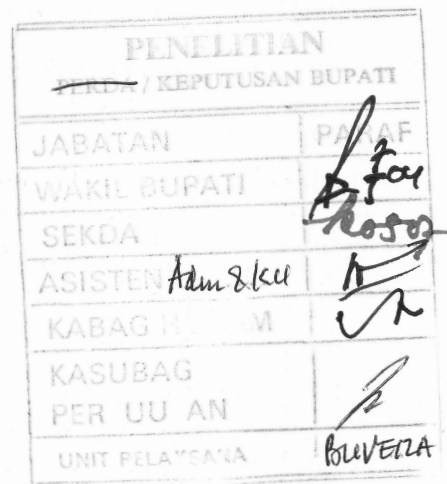 PENELITIAN
PERDA / KEPUTUSAN BUPATI
JABATAN PARAF
WAKIL BUPATI
SEKDA
ASISTEN Adm & Keu
KABAG
KASUBAG
PER UU AN
UNIT PELAKSANA